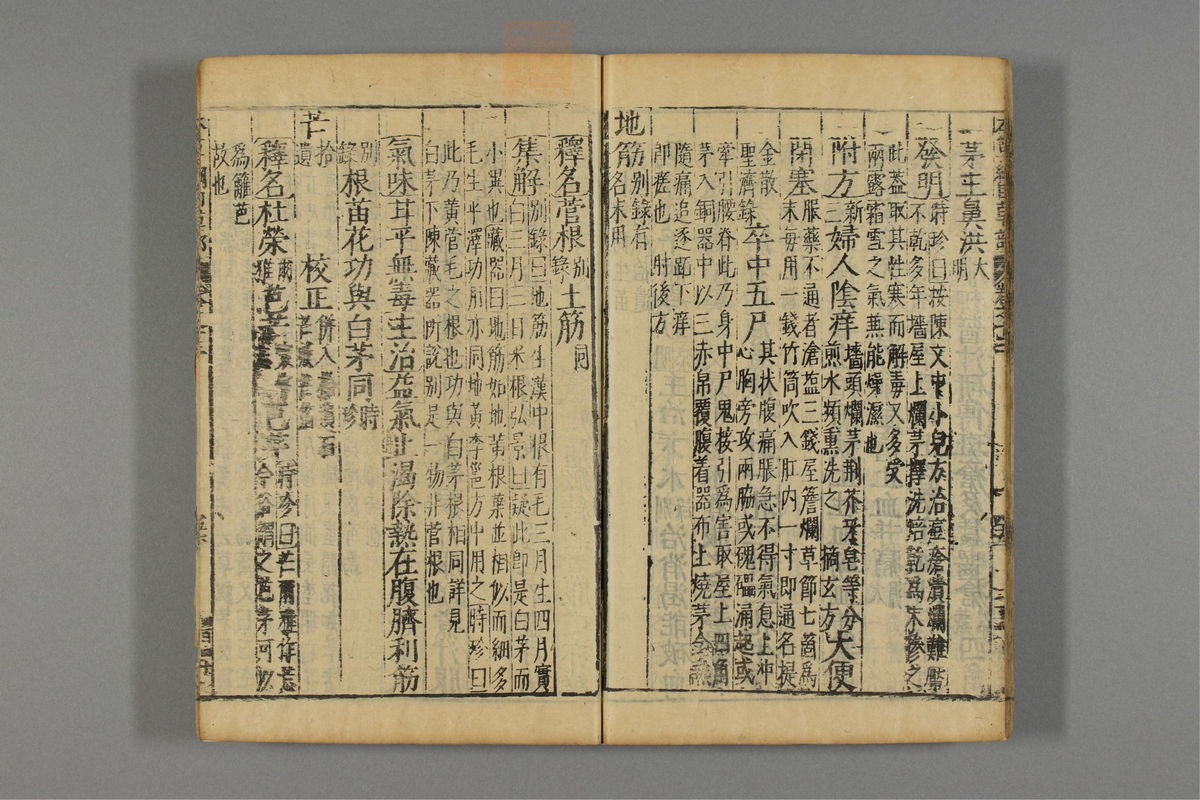 茅主鼻洪大明
發明時珍曰按陳文中小兒方治痘瘡潰爛難靨
不乾多年墻屋上爛茅擇洗焙乾爲末摻之
此蓋取其性寒而解毒又多受
雨露霜雪之氣兼能燥濕也
附方新三婦人陰痒墻頭爛茅荆芥牙皂等分煎水頻熏洗之摘玄方大便
閉塞服藥不通者滄盐三錢屋簷爛草節七箇爲
末每用一錢竹筒吹入肛内一寸即通名提
金散聖濟錄卒中五尸其狀腹痛脹急不得氣息上冲
心胸旁攻兩脇或磈磊涌起或
牽引腰脊此乃身中尸鬼接引爲害取屋上四角
茅入銅器中以三赤帛覆腹着器布上燒茅令熱
隨痛追逐跖下痒
即瘥也肘後方
地筋別錄有名未用
釋名菅根別錄土筋同
集解別錄曰地筋生漢中根有毛三月生四月實
白三月三日采根弘景曰疑此即是白茅而
小異也藏器曰地筋如地黃根葉並相似而細多
毛生平澤功用亦同地黃李邕方中用之時珍曰
此乃黃菅茅之根也功與白茅根相同詳見
白茅下陳藏器所説別是一物非菅根也
氣味甘平無毒主治益氣止渴除熱在腹臍利筋
別錄根苗花功與白茅同時珍
芒拾遺校正併入
釋名杜榮爾雅芭芒
時珍曰芒爾雅作
謂之芭茅可以
爲籬笆
故也